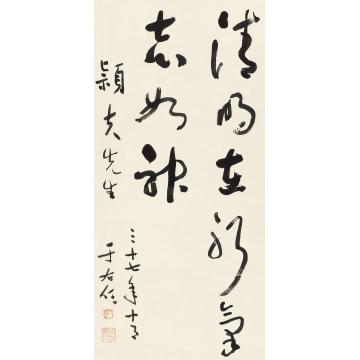 清明在躬氣
志如神
穎夫先生
三十七年十月
于右任